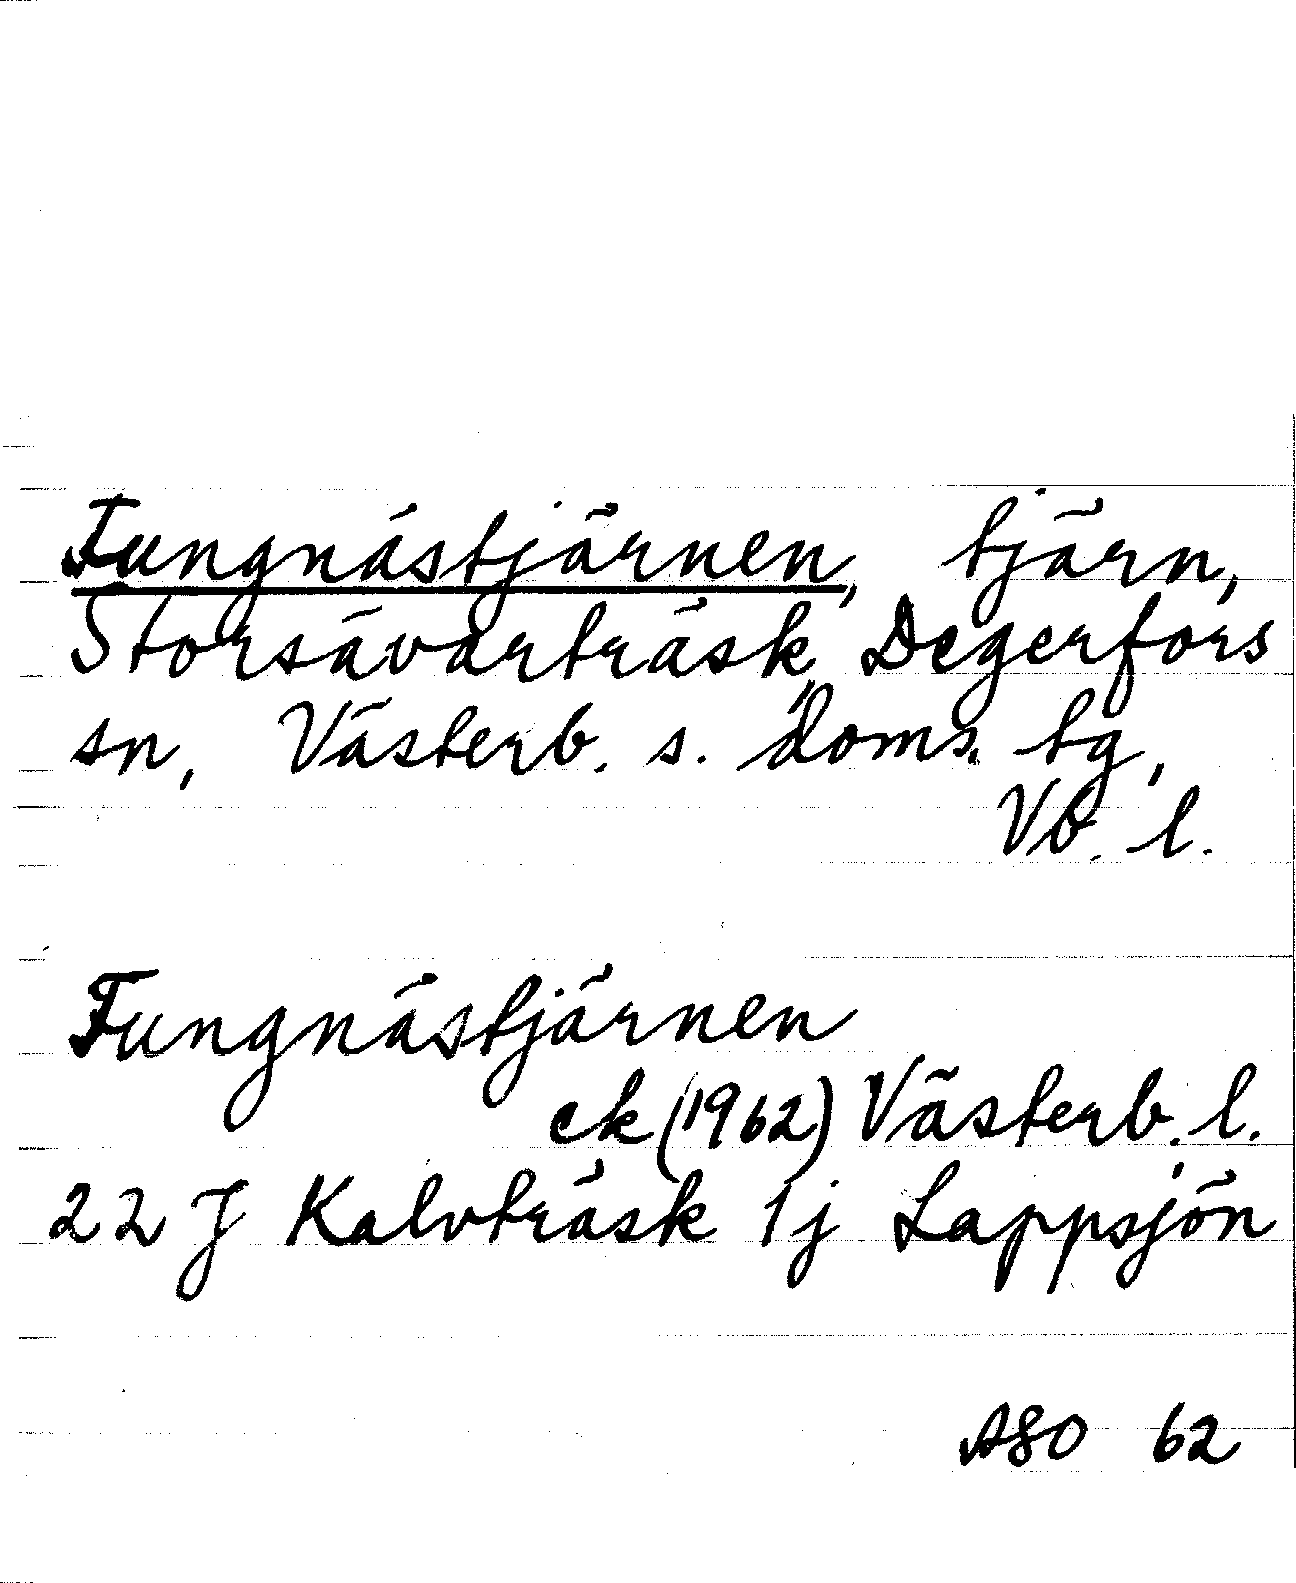 Fungnästjärnen, tjärn,
Storsävarträsk, Degerfors
sn, Västerb. s. doms. tg,
Vb. l.
Fungnästjärnen
ek (1962) Västerb. l.
22 J Kalvträsk 1j Lappsjön
ASO 62